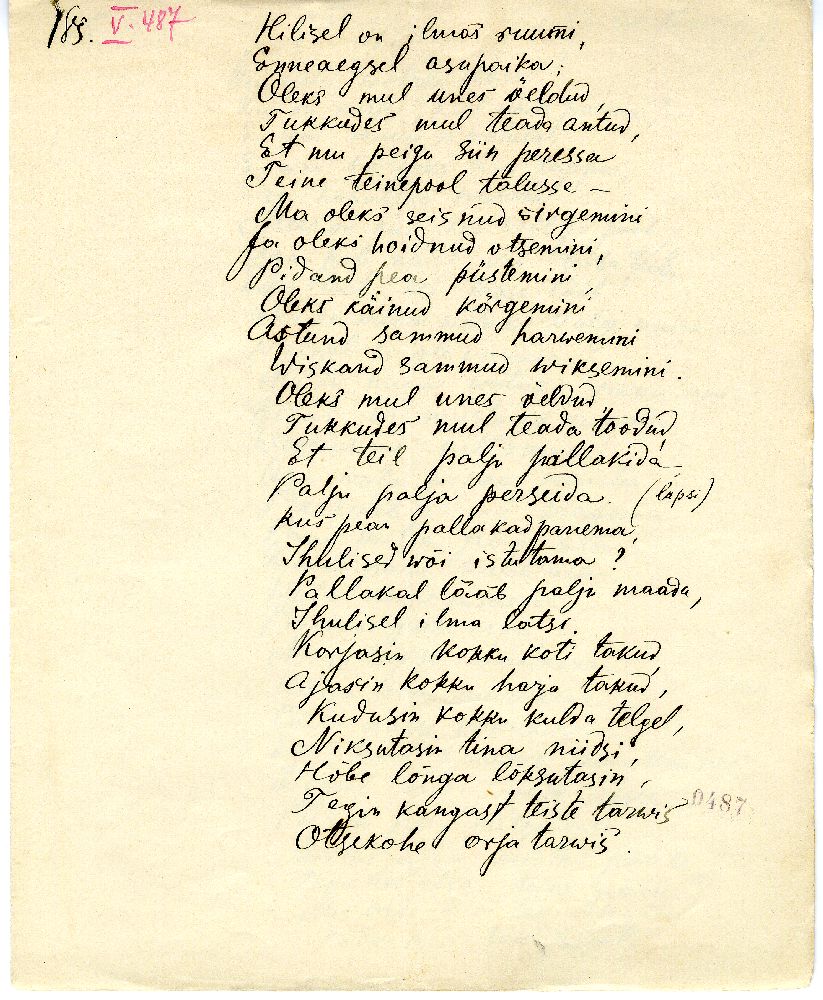 183. V. 487
Hilisel on ilmas ruumi,
Enneaegsel asupaika;
Oleks mul unes öeldud,
Tukkudes mul teada antud,
Et mu peigu siin peressa
Teine teinepool talusse –
Ma oleks seisnud sirgemini
Ja oleks hoidnud otsemini,
Pidand pea püstemini,
Oleks käinud kõrgemini
Astund sammud harwemini
Wiskand sammud wiksemini.
Oleks mul unes öeldud,
Tukkudes mul teada toodud,
Et teil palju pallakida –
Palju palja perseida. (lapsi)
Kus pean pallakad panema,
Ihulised wõi istutama?
Pallakal lääb palju maada,
Ihulisel ilma latsi.
Korjasin kokku koti takud,
Ajasin kokku harja takud,
Kudusin kokku kulda telgel,
Niksutasin tina niidsi,
Hõbe lõnga lõksutasin,
Tegin kangast teiste tarwis
Otsekohe orja tarwis.
0487